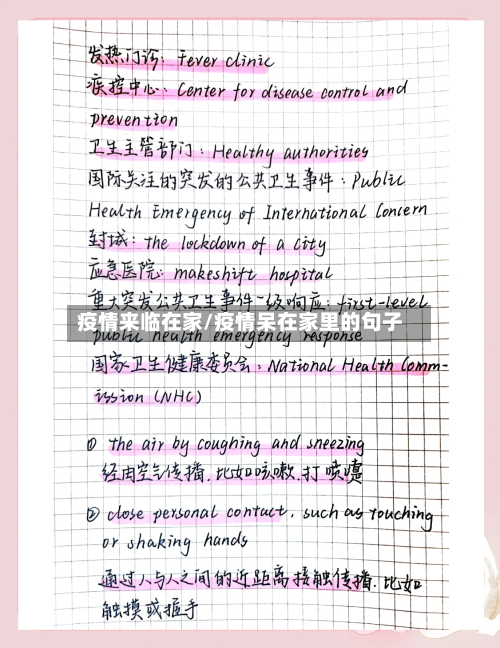 发热门诊: Fever clinic
疾控中心: Center for disease control and
prevention
卫生主管部门: Healthy authorities
国际关注的突发的公共卫生事件: Public
Health Emergency of International Concern
封城: the lockdown of a city
应急医院: makeshift hospital
重大突发公共卫生事件一级响应: first-level
疫情来临在家/疫情呆在家里的句子
public health emergency response
国家卫生健康委员会: National Health Comm-
ission (NHC)
① the air by coughing and sneezing
经由空气传播, 比如咳嗽, 打喷嚏
② close personal contact, such as touching
or shaking hands
通过人与人之间的近距离接触传播, 比如
触摸或握手